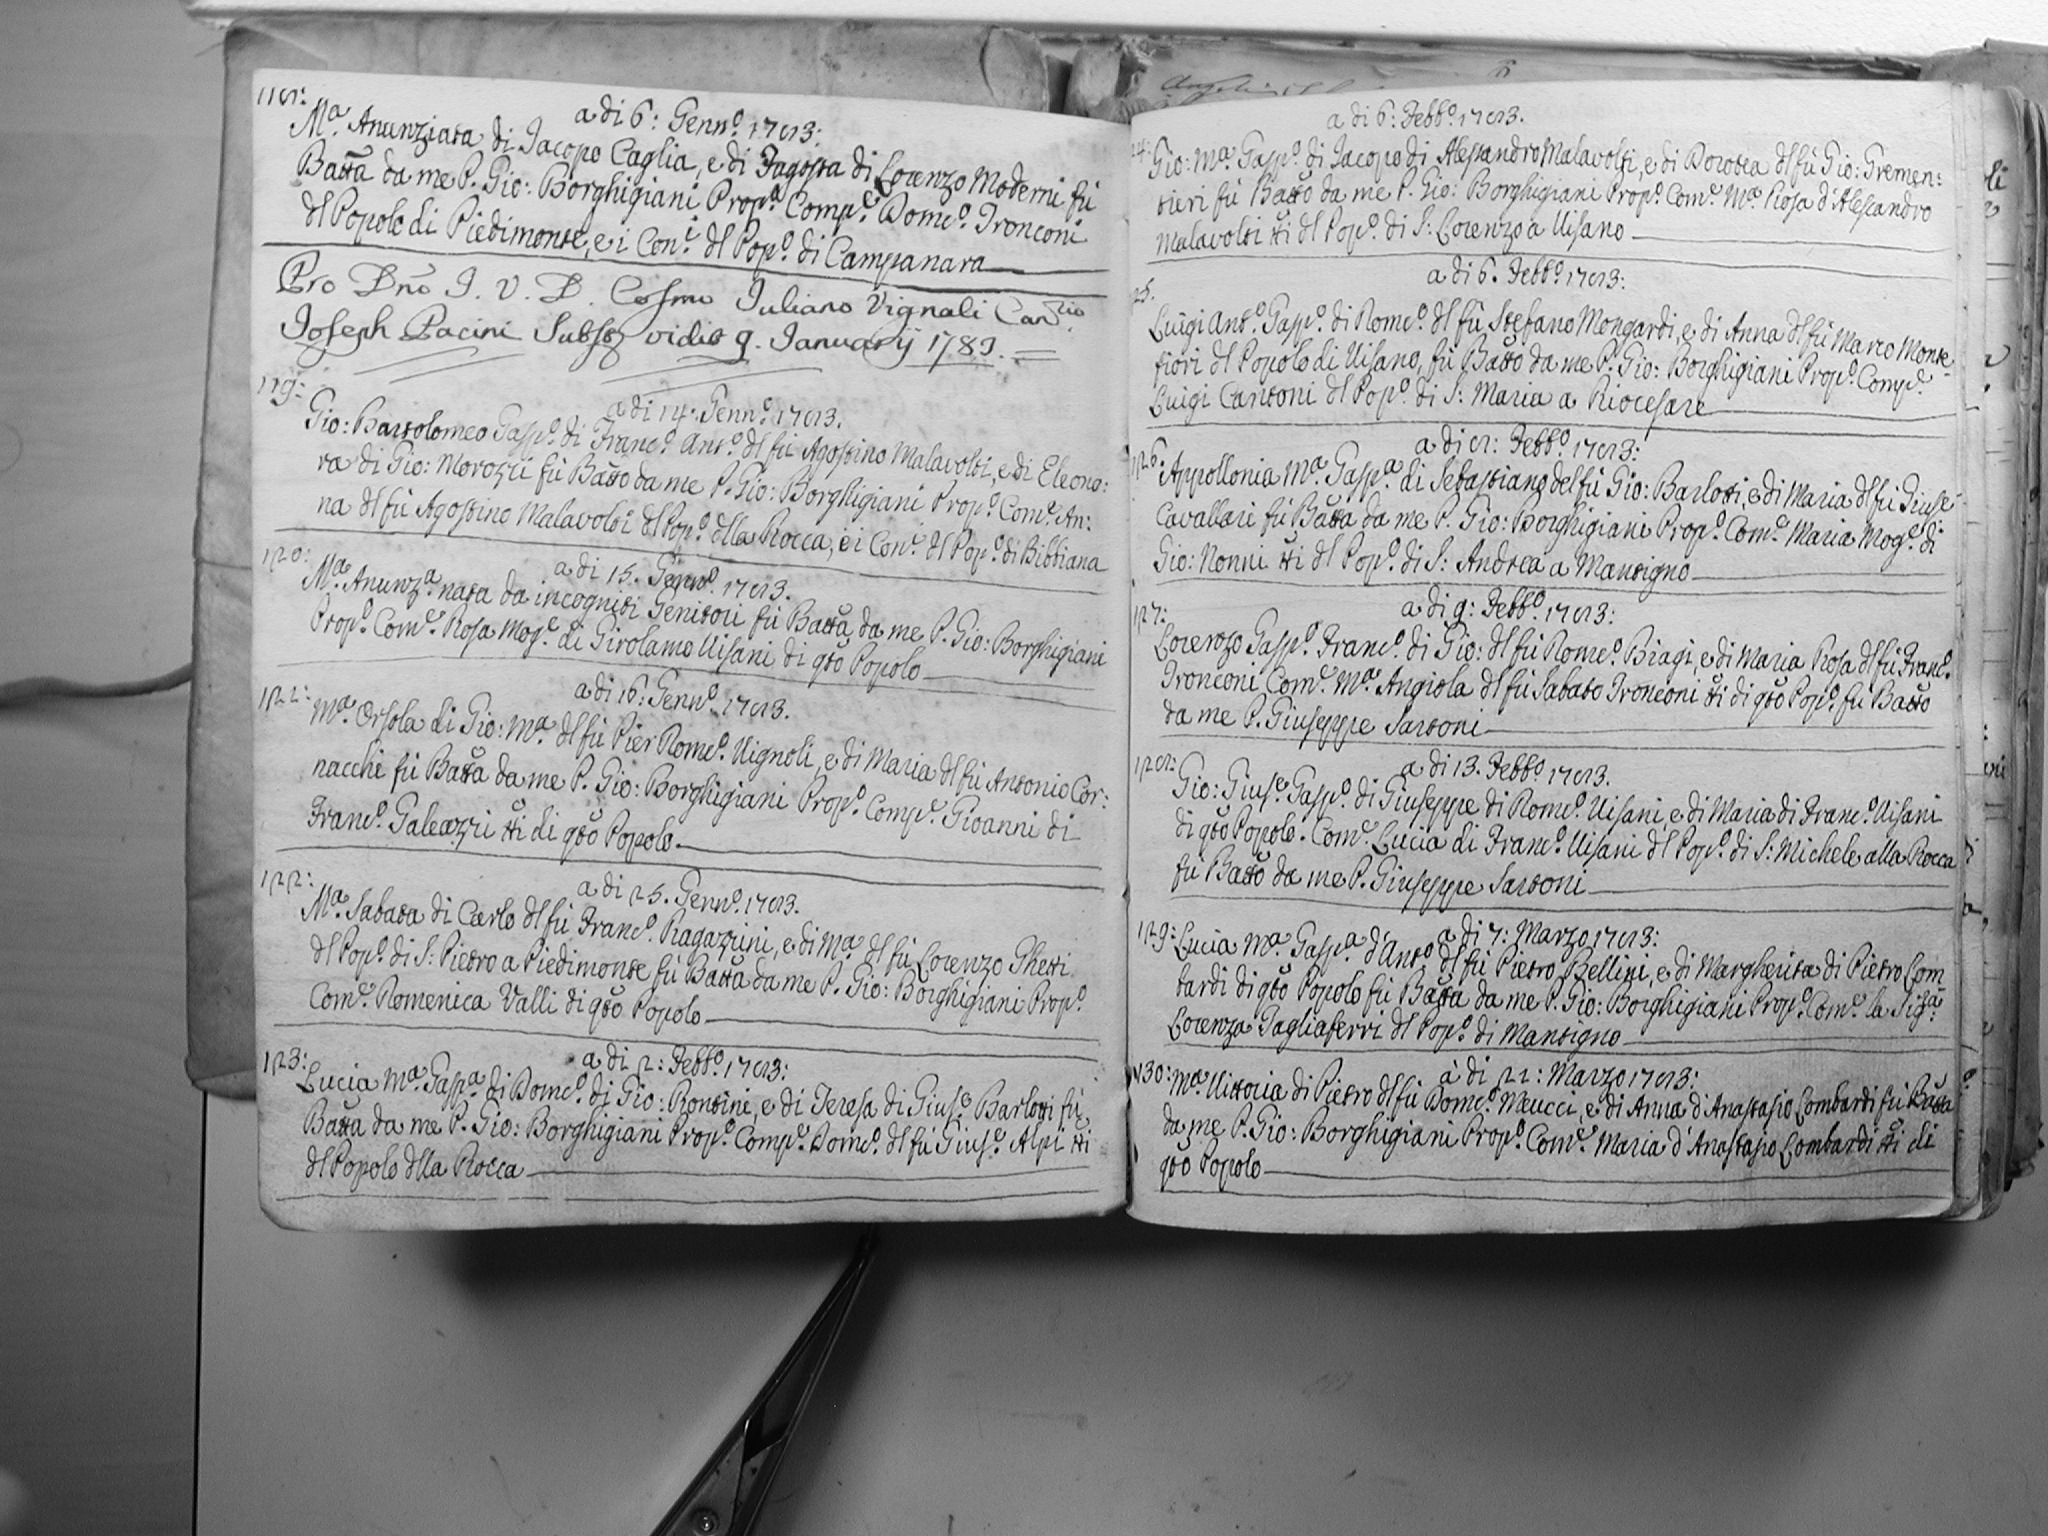 118:
a di 6: Genn.o 1783:
M.a Anunziata di Jacopo Caglia, e di Fagosta di Lorenzo Moderni fù
Batta da me P. Gio: Borghigiani Prop.o Comp.e Dom.co Tronconi
dl Popolo di Piedimonte, e i Con.i dl Pop.o di Campanara
Pro Dno I. V. D. Cosmo Juliano Vignali Can.rio
Joseph Pacini Subst vidit 9. Januarij 1783.
119:
a di 14: Genn.o 1783.
Gio: Bartolomeo Gasp.o di Franc.o Ant.o dl fù Agostino Malavolti, e di Eleono:
ra di Gio: Morozzi fù Batto da me P. Gio: Borghigiani Prop.o Com.e An:
na dl fù Agostino Malavolti dl Pop.o dlla Rocca, e i Con.i dl Pop.o di Bibbiana
120:
a di 15. Genn.o 1783.
M.a Anunz.a nata da incogniti Genitori fù Batta da me P. Gio: Borghigiani
Prop.o Com.e Rosa Mog.e di Girolamo Visani di qto Popolo
121:
a di 16: Genn.o 1783.
M.a Orsola di Gio: M.a dl fù Pier Dom.co Vignoli, e di Maria dl fù Antonio Cor:
nacchi fù Batta da me P. Gio: Borghigiani Prop.o Comp.e Gioanni di
Franc.o Galeazzi tti di qto Popolo
122:
a di 25. Genn.o 1783.
M.a Sabata di Carlo dl fù Franc.o Ragazzini, e di M.a dl fù Lorenzo Ghetti
dl Pop.o di S: Pietro a Piedimonte fù Batta da me P. Gio: Borghigiani Prop.o
Com.e Domenica Valli di qto Popolo
123:
a di 2: Febb.o 1783:
Lucia M.a Gasp.a di Dom.co di Gio: Rontini, e di Teresa di Gius.e Barlotti fù
Batta da me P. Gio: Borghigiani Prop.o Comp.e Dom.co dl fù Gius.e Alpi tti
dl Popolo dlla Rocca
a di 6: Febb.o 1783.
24:
Gio: M.a Gasp.o di Jacopo di Alessandro Malavolti, e di Dorotea dl fù Gio: Tremen:
tieri fù Batto da me P. Gio: Borghigiani Prop.o Com.e M.a Rosa d'Alesandro
Malavolti tti dl Pop.o di S: Lorenzo a Visano
a di 6. Febb.o 1783:
25.
Luigi Ant.o Gasp.o di Dom.co dl fù Stefano Mongardi, e di Anna dl fù Marco Monte
fiori dl Popolo di Visano, fù Batto da me P. Gio: Borghigiani Prop.o Comp.e
Luigi Cantoni dl Pop.o di S: Maria a Riocesare
a di 8: Febb.o 1783:
126:
Appollonia M.a Gasp.a di Sebastiano del fù Gio: Barlotti, e di Maria dl fù Giuse-
Cavallari fù Batta da me P. Gio: Borghigiani Prop.o Com.e Maria Mog.e di
Gio: Nonni tti dl Pop.o di S: Andrea a Mantigno
127:
a di 9: Febb.o 1783:
Lorenzo Gasp.o Franc.o di Gio: dl fù Dom.co Biagi, e di Maria Rosa dl fù Franc.o
Tronconi, Com.e M.a Angiola dl fù Sabato Tronconi tti di qto Pop.o fù Batto
da me P. Giuseppe Sartoni
128:
a di 13. Febb.o 1783.
Gio: Gius.e Gasp.o di Giuseppe di Dom.co Visani, e di Maria di Franc.o Visani
di qto Popolo. Com.e Lucia di Franc.o Visani dl Pop.o di S: Michele alla Rocca
fù Batto da me P. Giuseppe Sartoni
129:
a di 7: Marzo 1783:
Lucia M.a Gasp.a d'Ant.o dl fù Pietro Bellini, e di Margherita di Pietro Lom
bardi di qto Popolo fù Batta da me P. Gio: Borghigiani Prop.o Com.e la Sig.ra
Lorenza Tagliaferri dl Pop.o di Mantigno
130:
à di 21: Marzo 1783:
M.a Vittoria di Pietro dl fù Dom.co Meucci, e di Anna d'Anastasio Lombardi fù Batta
da me P. Gio: Borghigiani Prop.o Com.e Maria d'Anastasio Lombardi tti di
qto Popolo